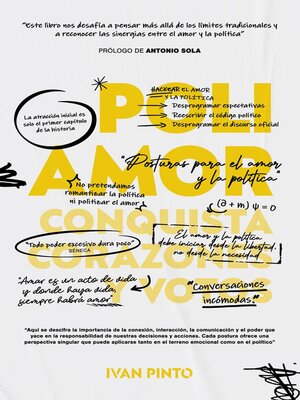 "Este libro nos desafía a pensar más allá de los límites tradicionales y
a reconocer las sinergias entre el amor y la política"
PRÓLOGO DE ANTONIO SOLA
POLI
AMOR
HACKEAR EL AMOR
Y LA POLÍTICA
Desprogramar expectativas
Reescribir el código político
Desprogramar el discurso oficial
La atracción inicial es
solo el primer capítulo
de la historia
"Posturas para el amor
y la política"
No pretendamos
romantizar la política
ni politizar el amor
(∂ + m) ψ = 0
CONQUISTA
CORAZONES
Y VOTOS
"Todo poder excesivo dura poco"
SÉNECA
El amor y la política
debe iniciar desde la libertad,
no desde la necesidad
"Amar es un acto de vida
y donde haya vida,
siempre habrá amor"
"Conversaciones
incómodas"
"Aquí se descifra la importancia de la conexión, interacción, la comunicación y el poder que
yace en la responsabilidad de nuestras decisiones y acciones. Cada postura ofrece una
perspectiva singular que puede aplicarse tanto en el terreno emocional como en el político"
IVAN PINTO